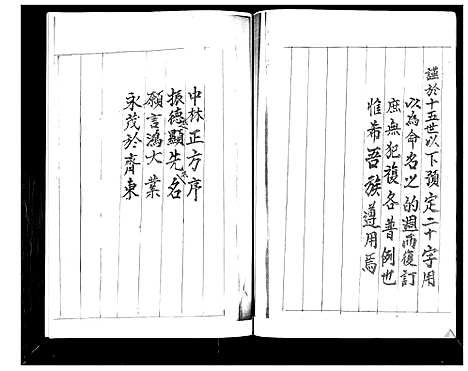 謹於十五世以下預定二十字用
以為命名之的週而復訂
庶無犯複各普例也
惟希吾族遵用焉
中林正方序
振德顯先名
願言鴻大業
永茂於齊東